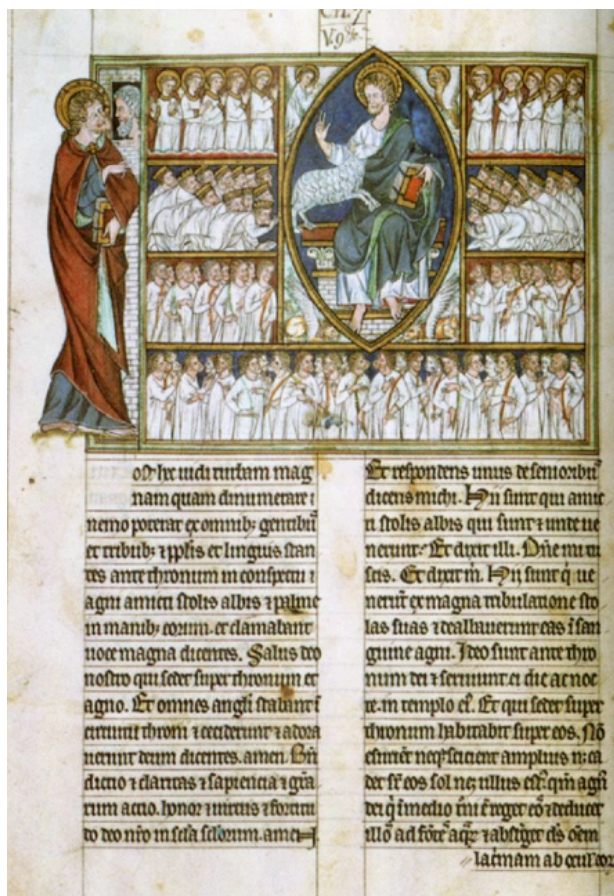 Ch. 7.
V. 9.
ost hec uidi turbam mag
nam quam dinumerare
nemo poterat ex omnibꝫ gentibꝰ
et tribubꝫ ⁊ pplis et linguis stan
tes ante thronum in conspectu
agni amicti stolis albis ⁊ palme
in manibꝫ eorum. et clamabant
uoce magna dicentes. Salus deo
nostro qui sedet super thronum et
agno. Et omnes angli stabant ī
circuitu throni ⁊ ceciderunt ⁊ adora
uerunt deum dicentes. amen. Bn̄
dictio ⁊ claritas ⁊ sapiencia ⁊ gr̄a
rum actio. honor ⁊ uirtus ⁊ fortitu
do deo nr̄o in scl̄a scl̄orum. amen
Et respondens unus de senioribꝰ
dicens michi. Hii sunt qui amic
ti stolis albis qui sunt ⁊ unde ue
nerunt. Et dixit illi. Dn̄e mi tu
scis. Et dixit m̄. Hii sunt q̄ ue
nerūt ex magna tribulatione sto
las suas ⁊ dealbauerunt eas ī san
guine agni. Ideo sunt ante thro
num dei ⁊ seruiunt ei die ac noc
te. in templo eꝰ. Et qui sedet super
thronum habitabit super eos. Nō
esuriēt neqꝫ scicient amplius n; ca
det sr̄ eos sol neꝫ ullus est. qm̄ agn̄
illos ad fōtē aqꝫ ⁊ absterget ds̄ oēm
lac̄mam ab oculꝭ eoꝝ